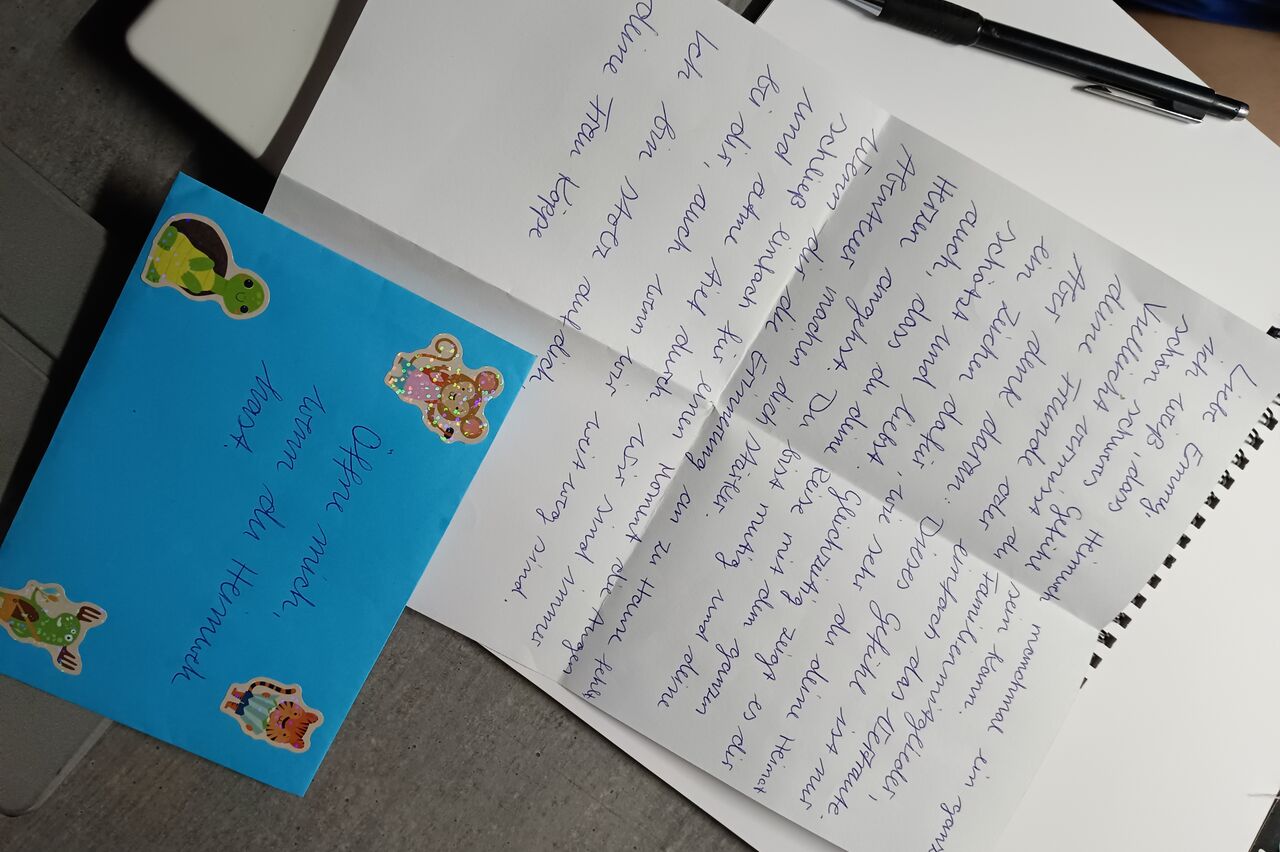 Liebe Emmy
ich weiß, dass Heimweh manchmal ein ganz
schön schweres Gefühl sein kann.
Vielleicht vermisst du Familienmitglieder,
deine Freunde oder einfach das Vertraute.
Aber denk daran: Dieses Gefühl ist nur
ein Zeichen dafür, wie sehr du deine Heimat
auch schätzt und liebst. Gleichzeitig zeigt es dir
auch, dass du deine Reise mit dem ganzen
Herzen angehst. Du bist mutig und deine
Abenteuer machen dich stärker.
Wenn dir die Erinnerung an zu Hause fehlt
schließ einfach für einen Moment die Augen
und atme tief durch. Wir sind immer
bei dir, auch wenn wir weit weg sind.
Ich bin stolz auf dich
deine Frau Köppe
Öffne mich,
wenn du Heimweh
hast.